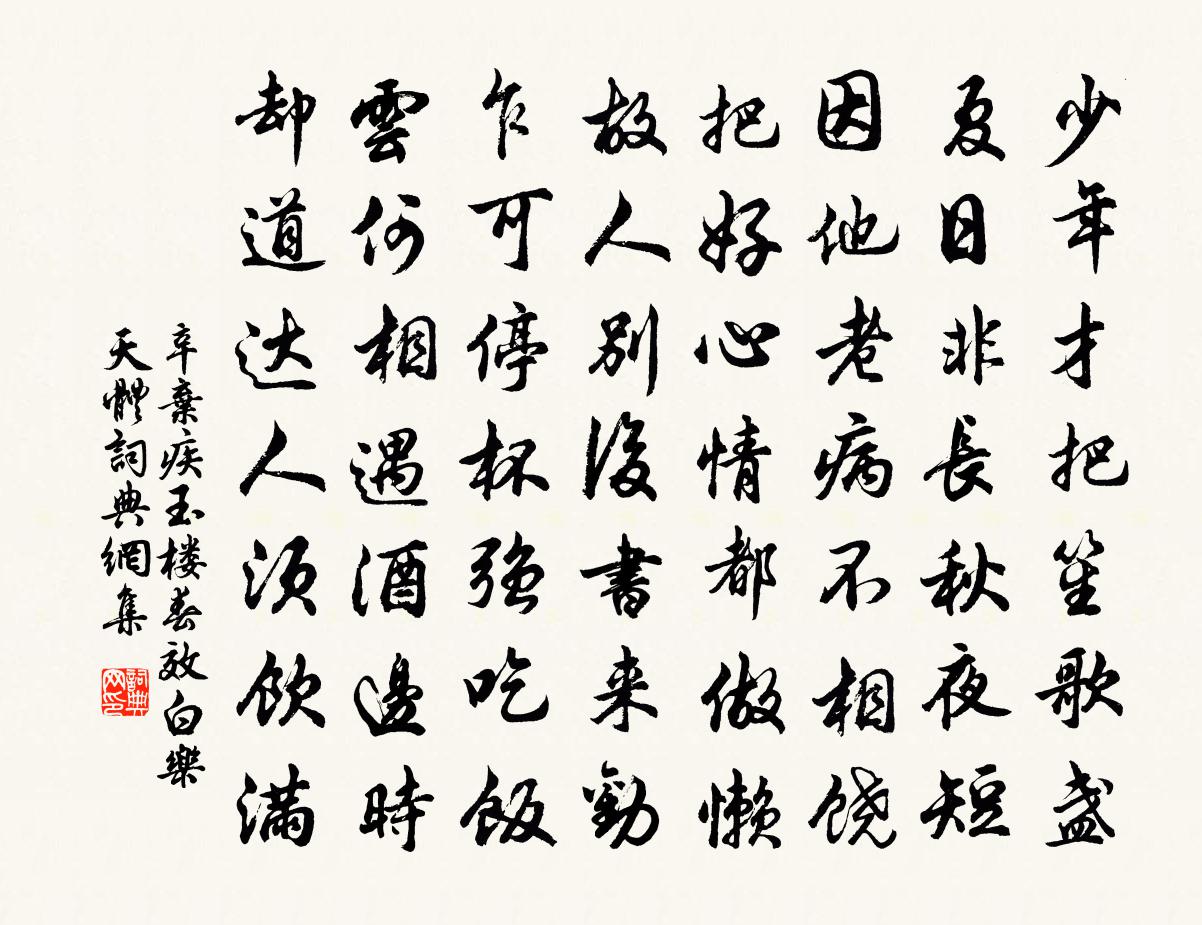 少年才把笙歌盏
夏日非長秋夜短
因他老病不相饶
把好心情都做懒
故人别後書来勸
乍可停杯强吃飯
雲何相遇酒邊時
却道达人须飲满
辛棄疾玉楼春效白樂
天體詞典網集
詞典
网印